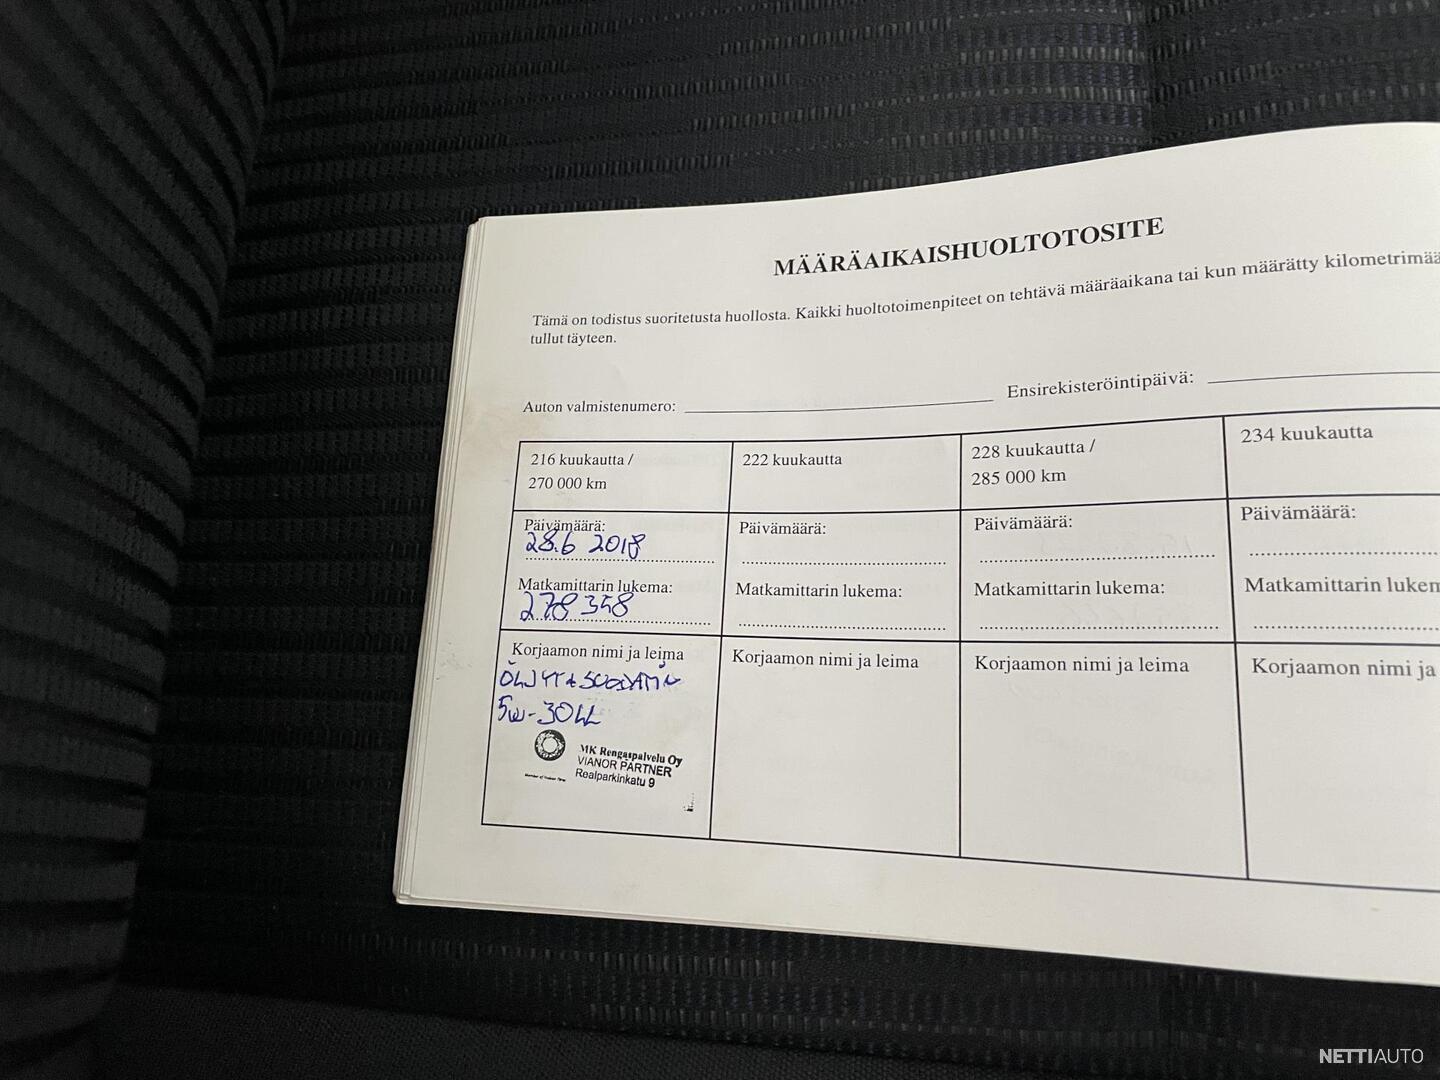 MÄÄRÄAIKAISHUOLTOTOSITE
Tämä on todistus suoritetusta huollosta. Kaikki huoltotoimenpiteet on tehtävä määräaikana tai kun määrätty kilometrimää
tullut täyteen.
Auton valmistenumero:
Ensirekisteröintipäivä:
216 kuukautta /
270 000 km
222 kuukautta
228 kuukautta /
285 000 km
234 kuukautta
Päivämäärä:
28.6 2018
Päivämäärä:
Päivämäärä:
Päivämäärä:
Matkamittarin lukema:
278 358
Matkamittarin lukema:
Matkamittarin lukema:
Matkamittarin lukem
Korjaamon nimi ja leima
ÖLJYT + SUODATIN
5W-30LL
MK Rengaspalvelu Oy
VIANOR PARTNER
Realparkinkatu 9
Korjaamon nimi ja leima
Korjaamon nimi ja leima
Korjaamon nimi ja
NETTIAUTO